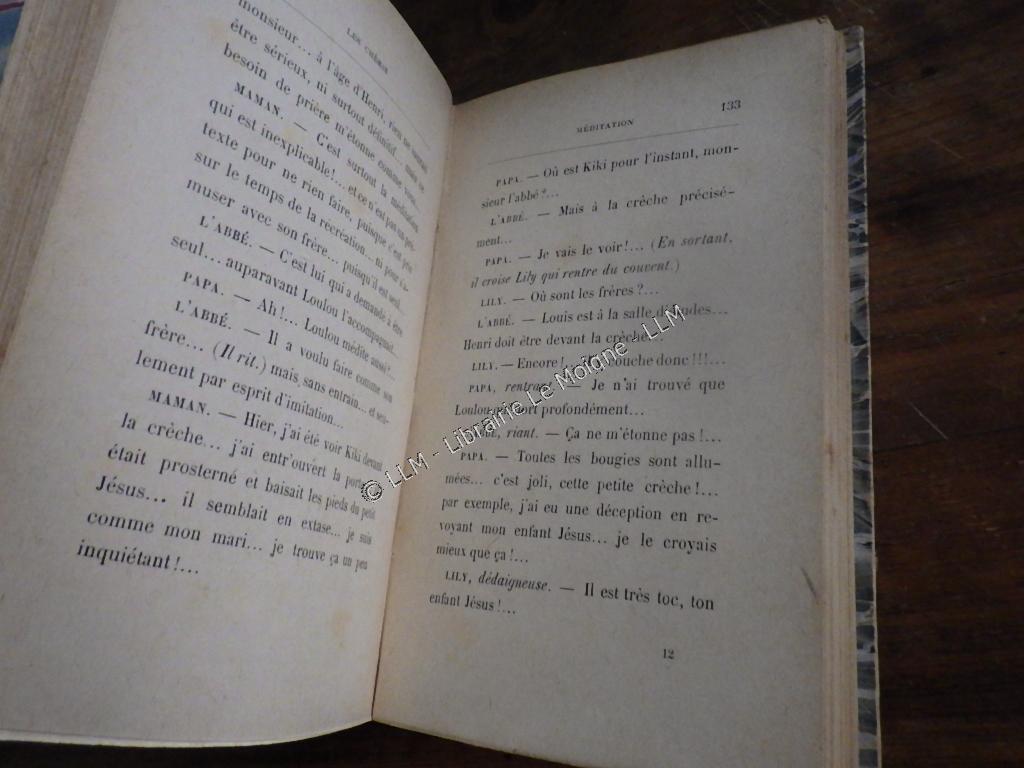 LES CHÉRIS
monsieur... à l'âge d'Henri, rien ne saurait
être sérieux, ni surtout définitif... mais ce
besoin de prière m'étonne comme vous...
MAMAN. — C'est surtout la méditation
qui est inexplicable!... et ce n'est pas un pré-
texte pour ne rien faire, puisque c'est pris
sur le temps de la récréation... ni pour s'a-
muser avec son frère... puisqu'il est seul...
L'ABBÉ. — C'est lui qui a demandé à être
seul... auparavant Loulou l'accompagnait...
PAPA. — Ah!... Loulou médite aussi?...
L'ABBÉ. — Il a voulu faire comme son
frère... (Il rit.) mais sans entrain... et seu-
lement par esprit d'imitation...
MAMAN. — Hier, j'ai été voir Kiki devant
la crèche... j'ai entr'ouvert la porte...
était prosterné et baisait les pieds du petit
Jésus... il semblait en extase... je suis
comme mon mari... je trouve ça un peu
inquiétant!...
MÉDITATION 133
PAPA. — Où est Kiki pour l'instant, mon-
sieur l'abbé?...
L'ABBÉ. — Mais à la crèche précisé-
ment...
PAPA. — Je vais le voir!... (En sortant,
il croise Lily qui rentre du couvent.)
LILY. — Où sont les frères?...
L'ABBÉ. — Louis est à la salle d'études...
Henri doit être devant la crèche...
LILY. — Encore!... couche donc!!!...
PAPA, — Je n'ai trouvé que
Loulou qui dort profondément...
riant. — Ça ne m'étonne pas!...
PAPA. — Toutes les bougies sont allu-
mées... c'est joli, cette petite crèche!...
par exemple, j'ai eu une déception en re-
voyant mon enfant Jésus... je le croyais
mieux que ça!...
LILY, dédaigneuse. — Il est très toc, ton
enfant Jésus!...
12
© LLM - Librairie Le Moigne - LLM